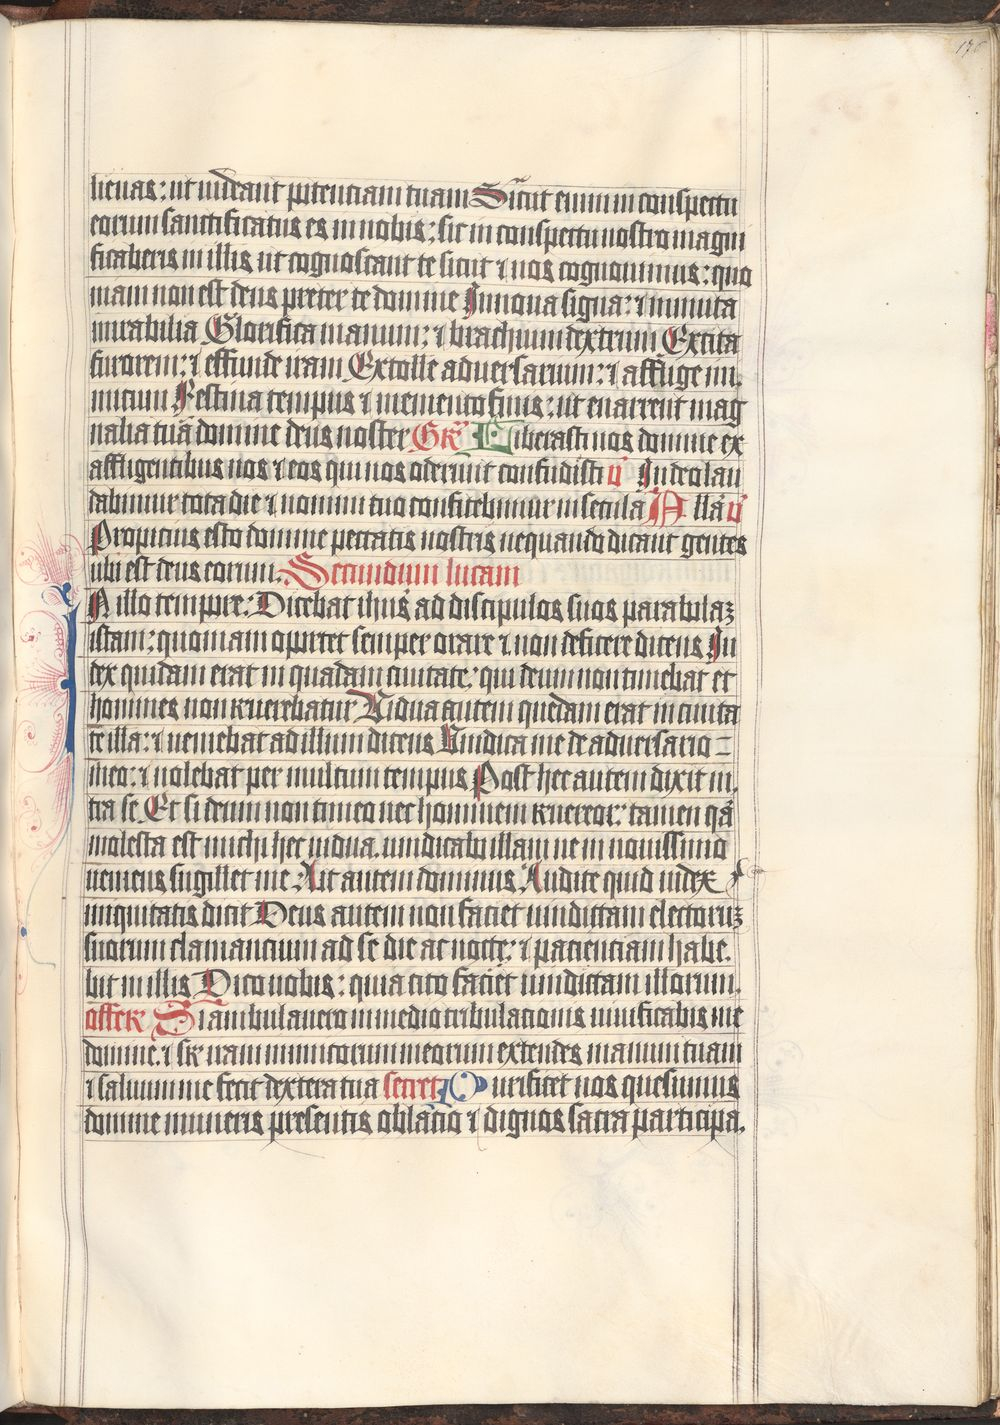 176
lienas: ut uideant potenciam tuam Sicut enim in conspectu
eorum sanctificatus es in nobis: sic in conspectu nostro magni
ficaberis in illis ut cognoscant te sicut ⁊ nos cognouimus: quo
niam non est deus preter te domine Innoua signa: ⁊ inmuta
mirabilia Glorifica manum: ⁊ brachium dextrum Excita
furorem: ⁊ effunde iram Extolle aduersarium: ⁊ afflige ini
micum Festina tempus ⁊ memento finis: ut enarrent mag
nalia tuā domine deus noster Gr̄ Liberasti nos domine ex
affligentibus nos ⁊ eos qui nos oderunt confudisti v̄ In deo lau
dabimur tota die ⁊ nomini tuo confitebimur in secula All̄a v̄
Propicius esto domine peccatis nostris nequando dicant gentes
ubi est deus eorum. Secundum lucam
In illo tempore: Dicebat ihūs ad discipulos suos parabolaꝫ
istam: quoniam oportet semper orare ⁊ non deficere dicens Iu
dex quidam erat in quadam ciuitate: qui deum non timebat et
homines non reuerebatur Vidua autem quedam erat in ciuita
te illa: ⁊ ueniebat ad illum dicens Vindica me de aduersario
meo: ⁊ nolebat per multum tempus Post hec autem dixit in
tra se Et si deum non timeo nec hominem reuereor: tamen qā
molesta est michi hec uidua uindicabo illam ne in nouissimo
ueniens sugillet me Ait autem dominus Audite quid iudex
iniquitatis dicit Deus autem non faciet uindictam electoruꝫ
suorum clamancium ad se die ac nocte: ⁊ pacienciam habe
bit in illis Dico uobis: quia cito faciet uindictam illorum.
offer̄ Si ambulauero in medio tribulacionis uiuificabis me
domine. ⁊ sr̄ iram inimicorum meorum extendes manum tuam
⁊ saluum me fecit dextera tua secret Purificet nos quesumus
domine muneris presentis oblacio ⁊ dignos sacra participa